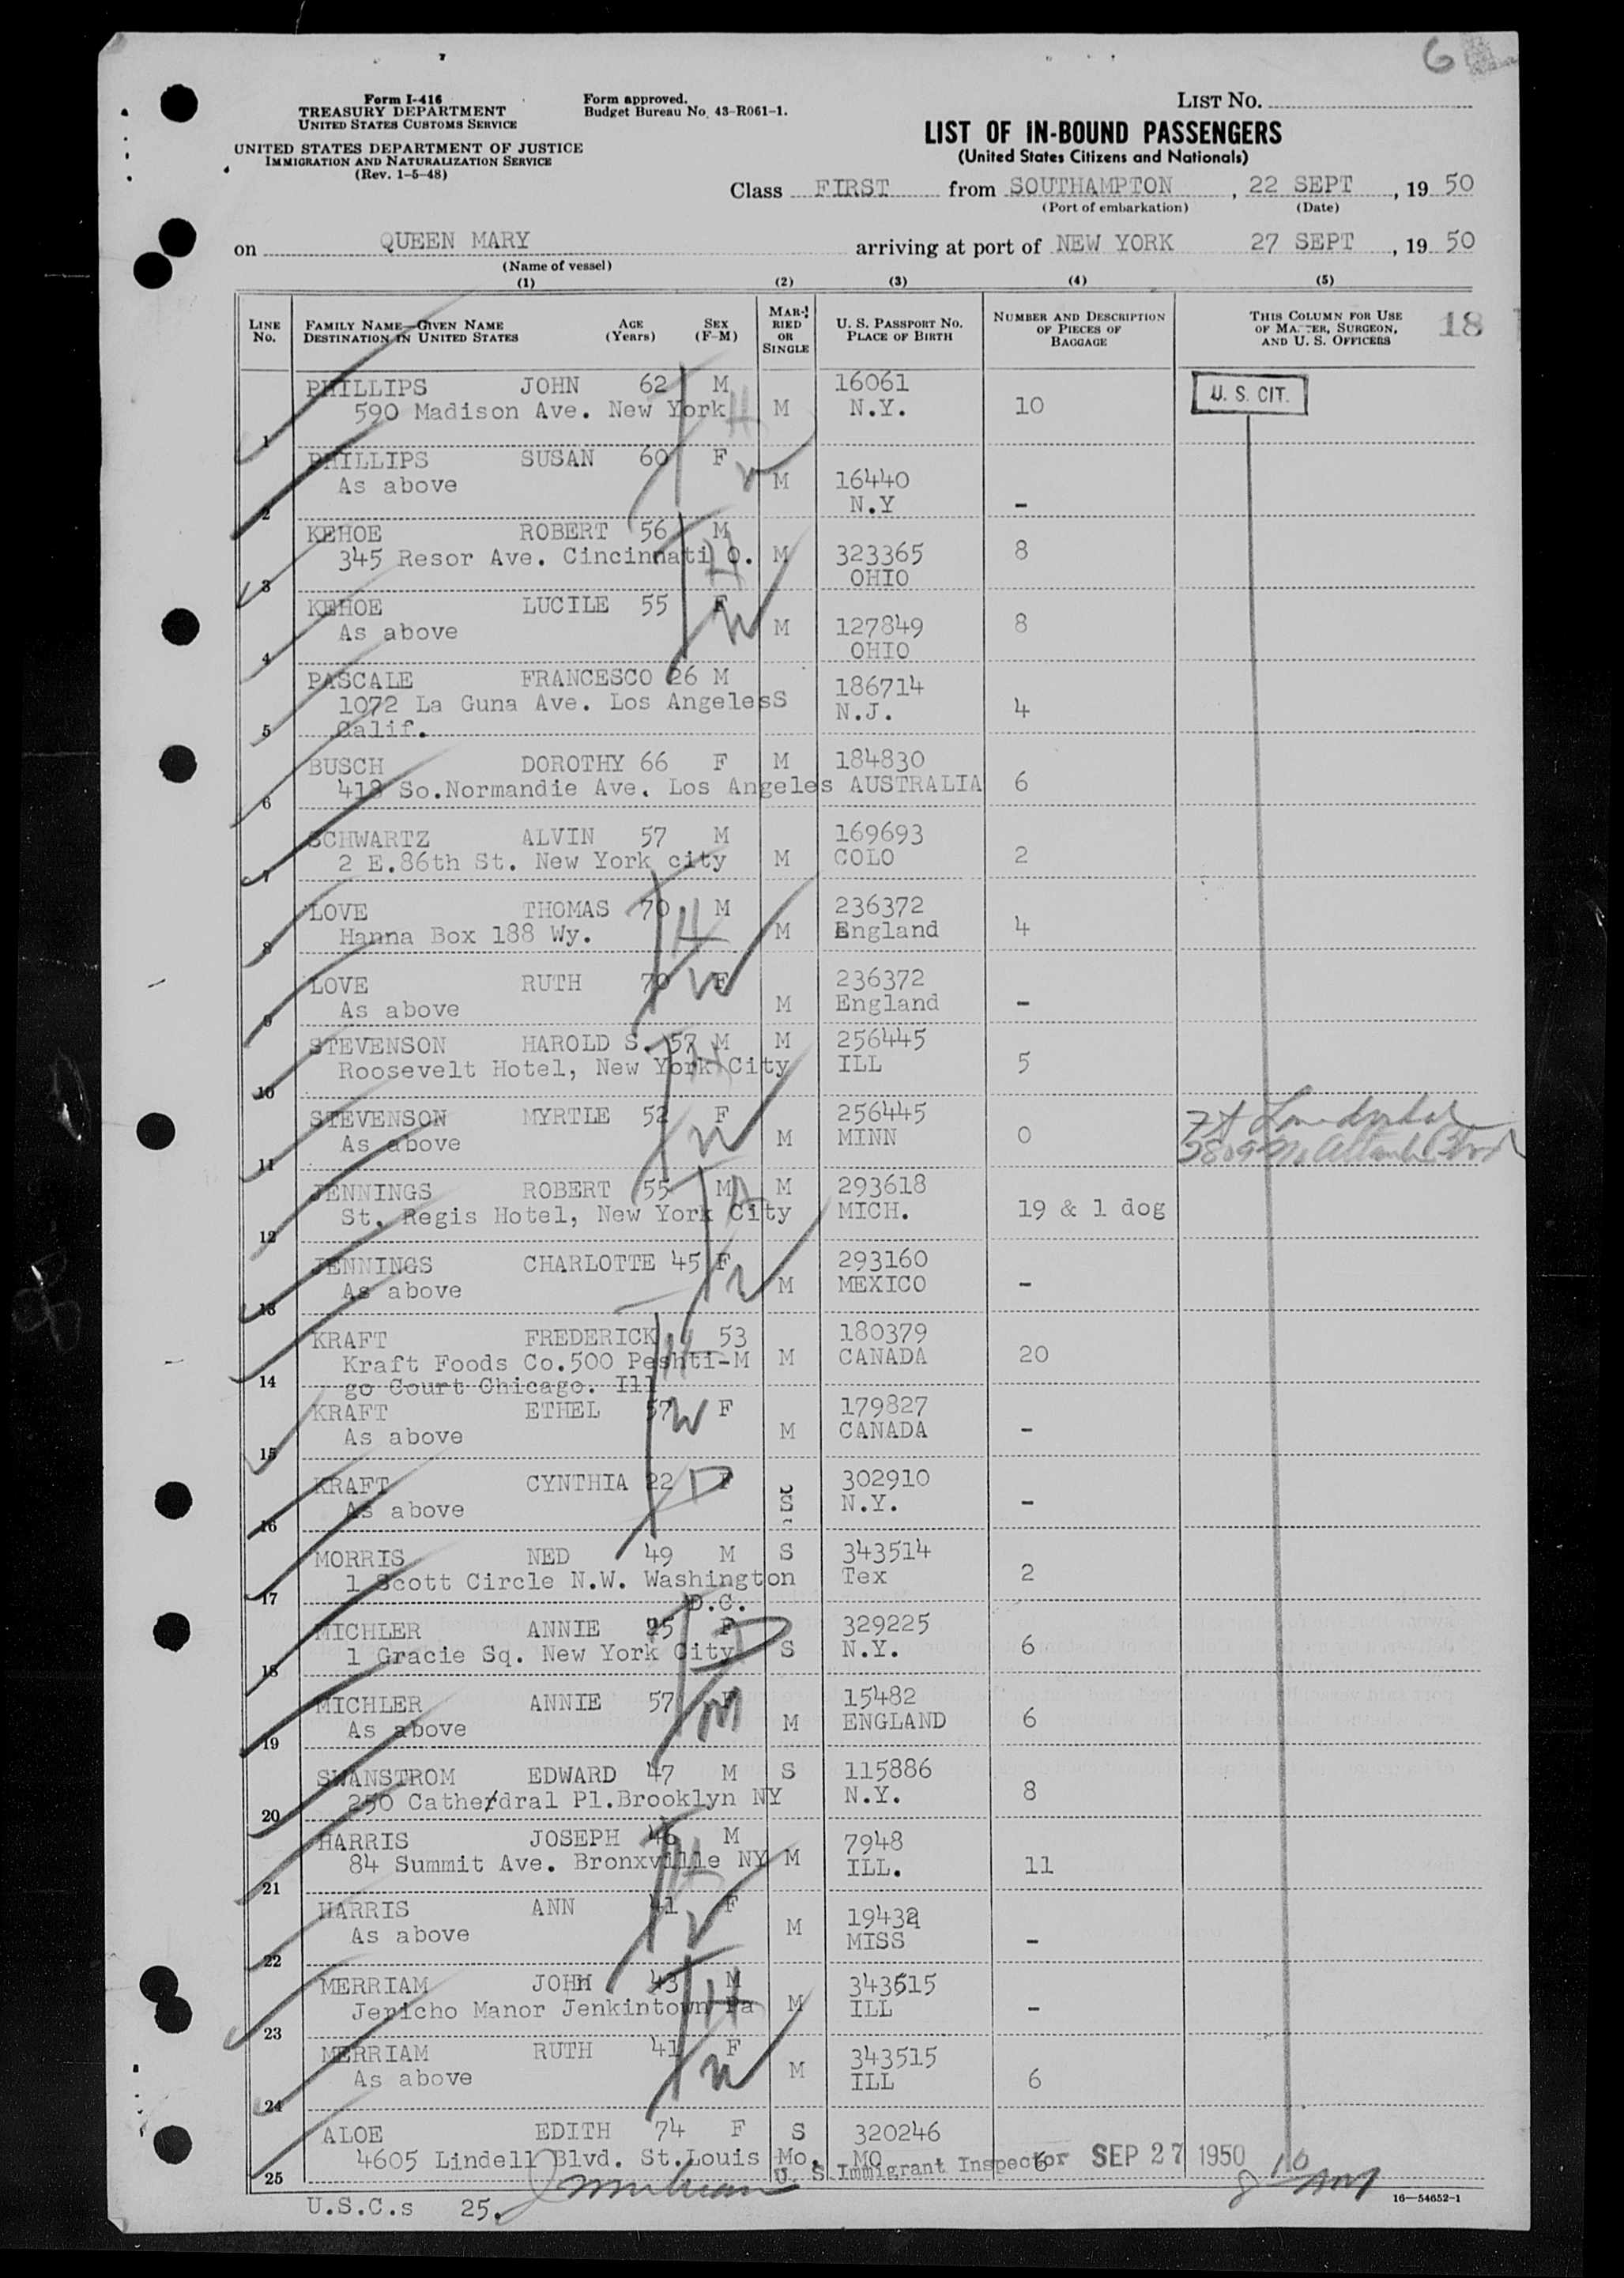 6
Form I-416
TREASURY DEPARTMENT
UNITED STATES CUSTOMS SERVICE
UNITED STATES DEPARTMENT OF JUSTICE
IMMIGRATION AND NATURALIZATION SERVICE
(Rev. 1-5-48)
Form approved.
Budget Bureau No. 43-R061-1.
LIST NO.
LIST OF IN-BOUND PASSENGERS
(United States Citizens and Nationals)
Class FIRST from SOUTHAMPTON, 22 SEPT, 19 50
(Port of embarkation) (Date)
on QUEEN MARY arriving at port of NEW YORK 27 SEPT, 19 50
(Name of vessel)
(1) (2) (3) (4) (5)
LINE NO. FAMILY NAME—GIVEN NAME DESTINATION IN UNITED STATES AGE (Years) SEX (F-M) MARRIED OR SINGLE U. S. PASSPORT NO. PLACE OF BIRTH NUMBER AND DESCRIPTION OF PIECES OF BAGGAGE THIS COLUMN FOR USE OF MASTER, SURGEON, AND U. S. OFFICERS 18
PHILLIPS JOHN 62 M 16061 U. S. CIT.
590 Madison Ave. New York M N.Y. 10
1
PHILLIPS SUSAN 60 F
As above M 16440
2 N.Y -
KEHOE ROBERT 56 M
345 Resor Ave. Cincinnati O. M 323365 8
3 OHIO
KEHOE LUCILE 55 F
As above M 127849 8
4 OHIO
PASCALE FRANCESCO 26 M 186714
1072 La Guna Ave. Los Angeles S N.J. 4
5 Calif.
BUSCH DOROTHY 66 F M 184830
418 So.Normandie Ave. Los Angeles AUSTRALIA 6
6
SCHWARTZ ALVIN 57 M 169693
2 E.86th St. New York city M COLO 2
7
LOVE THOMAS 70 M 236372
Hanna Box 188 Wy. M England 4
8
LOVE RUTH 70 F 236372
As above M England -
9
STEVENSON HAROLD S. 57 M M 256445
Roosevelt Hotel, New York City ILL 5
10
STEVENSON MYRTLE 52 F 256445
As above M MINN 0
11
JENNINGS ROBERT 55 M M 293618
St. Regis Hotel, New York City MICH. 19 & 1 dog
12
JENNINGS CHARLOTTE 45 F 293160
As above M MEXICO -
13
KRAFT FREDERICK 53 180379
Kraft Foods Co.500 Peshti-M M CANADA 20
14 go Court Chicago. Ill
KRAFT ETHEL 57 F 179827
As above M CANADA -
15
KRAFT CYNTHIA 22 F 302910
As above S N.Y. -
16
MORRIS NED 49 M S 343514
1 Scott Circle N.W. Washington Tex 2
17 D.C.
MICHLER ANNIE 25 F 329225
1 Gracie Sq. New York City S N.Y. 6
18
MICHLER ANNIE 57 F 15482
As above M ENGLAND 6
19
SWANSTROM EDWARD 47 M S 115886
250 Cathe/dral Pl.Brooklyn NY N.Y. 8
20
HARRIS JOSEPH 46 M 7948
84 Summit Ave. Bronxville NY M ILL. 11
21
HARRIS ANN 41 F
As above M MISS -
22
MERRIAM JOHN 43 M 343515
Jericho Manor Jenkintown Pa M ILL -
23
MERRIAM RUTH 41 F 343515
As above M ILL 6
24
ALOE EDITH 74 F S 320246
4605 Lindell Blvd. St.Louis Mo. MO 6
25 U. S. Immigrant Inspector SEP 27 1950
U.S.C.s 25.
16—54652-1